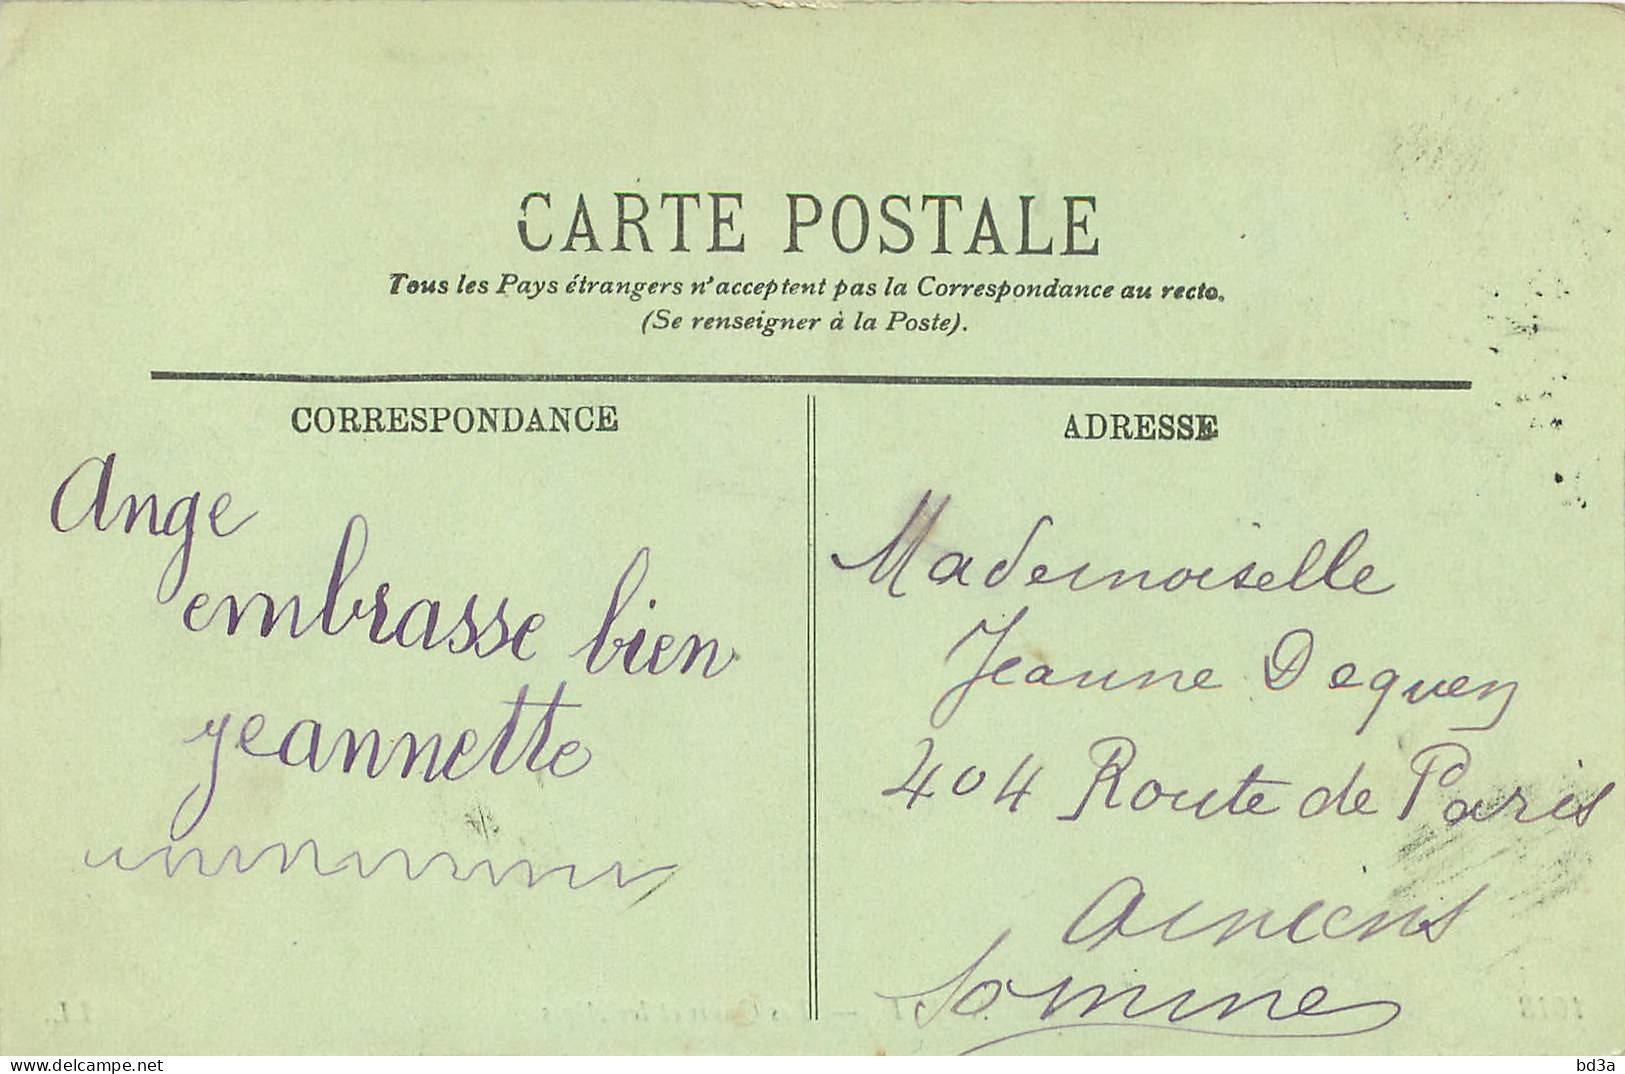 CARTE POSTALE
Tous les Pays étrangers n'acceptent pas la Correspondance au recto.
(Se renseigner à la Poste).
CORRESPONDANCE
Ange
embrasse bien
jeannette
ADRESSE
Mademoiselle
Jeanne Dequen
404 Route de Paris
Amiens
Somme
bd3a